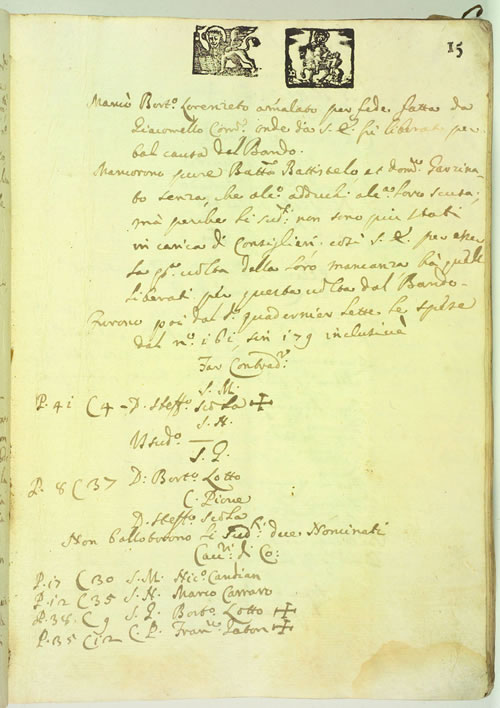 15
Mancò Bort.º Lorenzeto amalato per fede fatta da
Giacomello Com. onde da S. E. fu liberato per
tal causa dal Bando.
Mancorono pure Batt.ª Battistelo et Dom.º
senza che alc.º adduchi alc.ª loro scusa,
mà perche li sud.ⁱ non sono più stati
in carica di Consiglieri, così S. E. per esser
la p.ª volta della loro mancanza hà quelli
liberati per questa volta dal Bando.
Furono poi dal S.ʳ quadernier lette le spese
dal n.º 161, sin 179 inclusive
S. M.
P. 41 C 4 - D. Steff.º Scola ✠
S. N.
Il sud.º —
S. P.
P. 8 C 37 D: Bort.º Lotto
C. Piove
D. Steff.º Scola
Non ballotorono li sud.ⁱ due Nominati
di Co:
P. 17 C 30 S. M. Nic.º Candian
P. 12 C 35 S. N. Marco Carraro
P. 38 C 9 S. P. Bort.º Lotto ✠
P. 35 C 12 C. P. Fran.º ✠